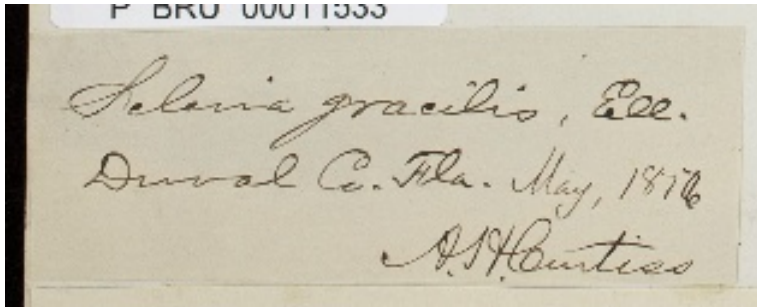 P BRU 00011533
Scleria gracilis, Ell.
Duval Co. Fla. May, 1876
A.H. Curtiss